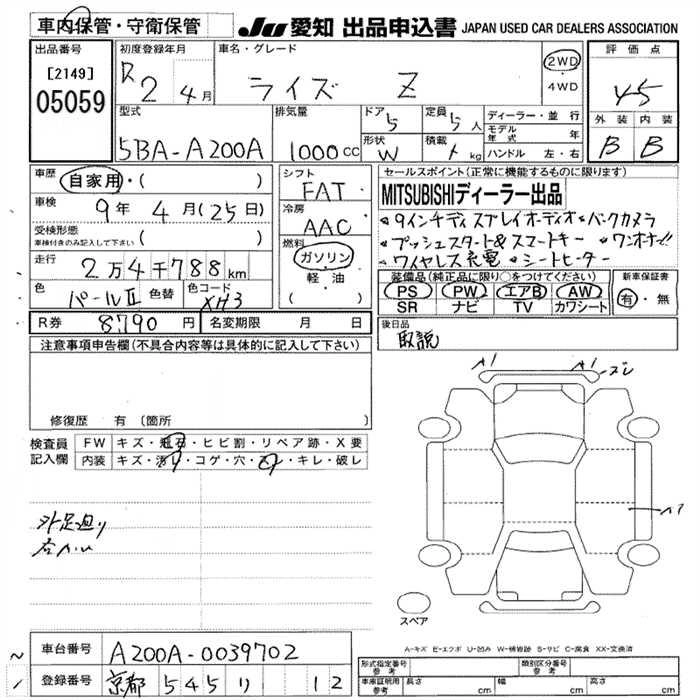 車内保管・守衛保管
JU 愛知 出品申込書 JAPAN USED CAR DEALERS ASSOCIATION
出品番号
[2149]
05059
初度登録年月
R 2 4月
車名・グレード
ライズ Z
2WD
4WD
評価点
4.5
外装 内装
B B
型式
5BA-A200A
排気量
1000cc
ドア
5
形状
W
定員
5人
積載
kg
ディーラー・並行
モデル年式 年
ハンドル 左・右
車歴
自家用・( )
車検
9年 4月(25日)
受検形態
車検付きのみ記入して下さい ( )
走行
2万4千788km
色
パールⅡ
色替
色コード
XH3
シフト
FAT
冷房
AAC
燃料
ガソリン
軽・油
( )
セールスポイント(正常に機能するものに限ります)
MITSUBISHIディーラー出品
9インチディスプレイオーディオ バックカメラ
プッシュスタート&スマートキー ワンオーナー!!
ワイヤレス充電 シートヒーター
装備品(純正品に限り○をつけてください)
PS PW エアB AW
SR ナビ TV カワシート
新車保証書
有・無
R券 8790円
名変期限 月 日
後日品
取説
注意事項申告欄(不具合内容等は具体的に記入して下さい)
修復歴 有 (箇所
検査員記入欄
FW キズ・飛石・ヒビ割・リペア跡・X要
内装 キズ・汚れ・コゲ・穴・スレ・キレ・破レ
外足廻り
A1 A1
ズレ
スペア
A-キズ E-エクボ U-凹み W-補修跡 S-サビ C-腐食 XX-交換済
車台番号 A200A-0039702
登録番号 京都 545 り 12
形式指定番号 参考
類別区分番号 参考
車庫証明用 参考 長さ cm 幅 cm 高さ cm